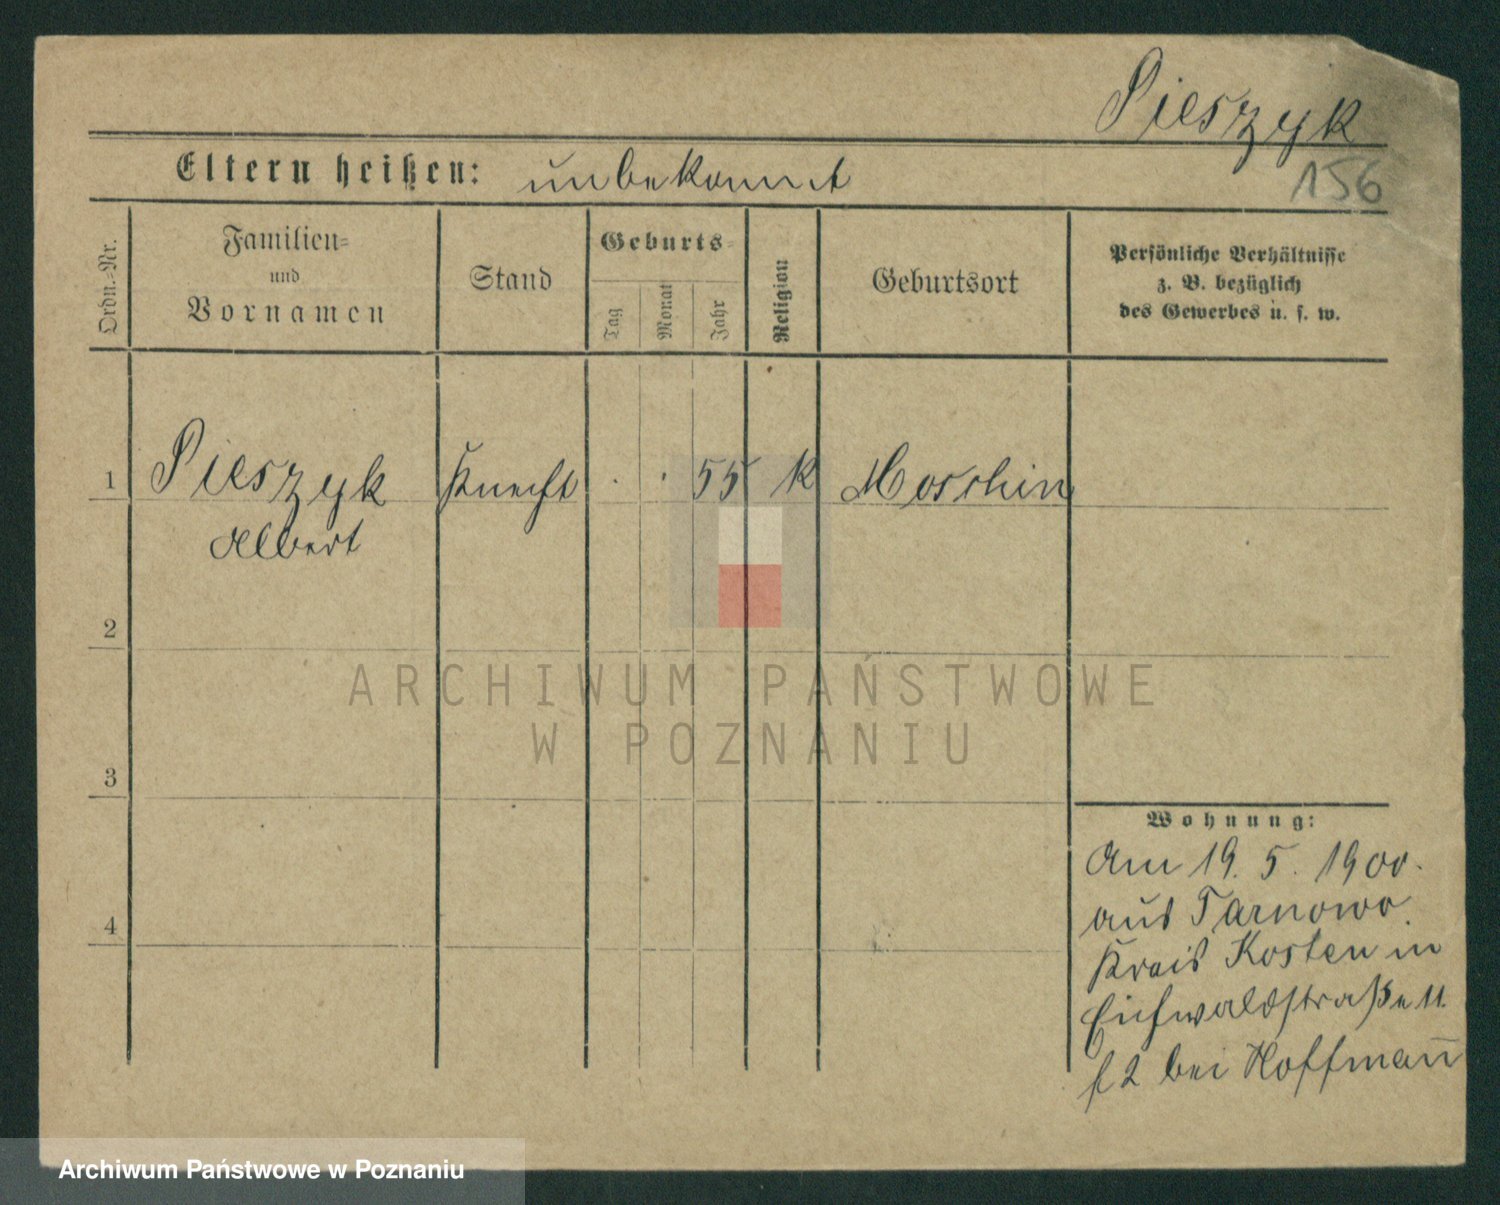 Pieszyk
156
Eltern heißen: unbekannt
Ordn.-Nr.
Familien-
und
Vornamen
Stand
Geburts-
Tag
Monat
Jahr
Religion
Geburtsort
Persönliche Verhältnisse
z. B. bezüglich
des Gewerbes u. s. w.
1 Pieszyk Knecht . . 55 k Moschin
Albert
2
ARCHIWUM PAŃSTWOWE
W POZNANIU
3
Wohnung:
Am 19. 5. 1900.
aus Tarnowo
4
Kreis Kosten in
Eichwaldstraße 11.
bei Hoffmann
Archiwum Państwowe w Poznaniu